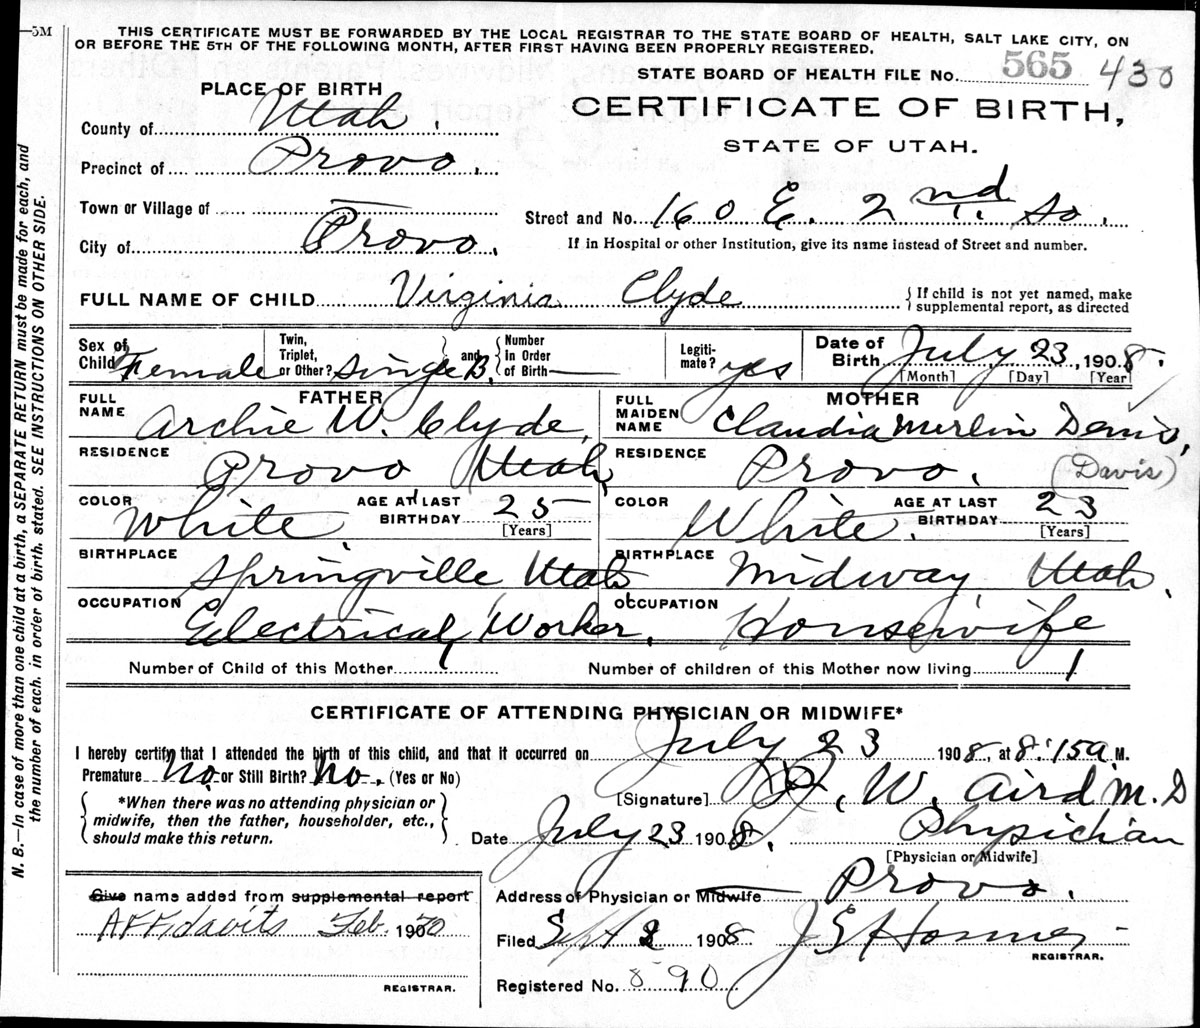 5M
THIS CERTIFICATE MUST BE FORWARDED BY THE LOCAL REGISTRAR TO THE STATE BOARD OF HEALTH, SALT LAKE CITY, ON
OR BEFORE THE 5TH OF THE FOLLOWING MONTH, AFTER FIRST HAVING BEEN PROPERLY REGISTERED.
STATE BOARD OF HEALTH FILE No. 565 430
PLACE OF BIRTH
CERTIFICATE OF BIRTH,
STATE OF UTAH.
County of Utah.
Precinct of Provo.
Town or Village of —
Street and No. 160 E. 2nd So.
City of Provo.
If in Hospital or other Institution, give its name instead of Street and number.
FULL NAME OF CHILD Virginia Clyde
{ If child is not yet named, make supplemental report, as directed
Sex of Child Female
Twin, Triplet, or Other? Single B. } and { Number In Order of Birth —
Legitimate? yes
Date of Birth July 23, 1908.
[Month] [Day] [Year]
FATHER
MOTHER
FULL NAME Archie W. Clyde.
FULL MAIDEN NAME Claudia Merlin Denis,
(Davis)
RESIDENCE Provo Utah,
RESIDENCE Provo.
COLOR White. AGE AT LAST BIRTHDAY 25 [Years]
COLOR White. AGE AT LAST BIRTHDAY 23 [Years]
BIRTHPLACE Springville Utah
BIRTHPLACE Midway, Utah.
OCCUPATION Electrical Worker.
OCCUPATION Housewife
Number of Child of this Mother 1
Number of children of this Mother now living 1
CERTIFICATE OF ATTENDING PHYSICIAN OR MIDWIFE*
I hereby certify that I attended the birth of this child, and that it occurred on July 23 1908, at 8:15 a. M.
Premature No. or Still Birth? No. (Yes or No)
{ *When there was no attending physician or midwife, then the father, householder, etc., should make this return. }
[Signature] W. Aird M.D
Date July 23 1908. Physician
[Physician or Midwife]
Give name added from supplemental report
Affidavits Feb. 1970
REGISTRAR.
Address of Physician or Midwife Provo.
Filed Sept 1908 J E Hosmer
REGISTRAR.
Registered No. 890
N. B.—In case of more than one child at a birth, a SEPARATE RETURN must be made for each, and
the number of each, in order of birth, stated. SEE INSTRUCTIONS ON OTHER SIDE.